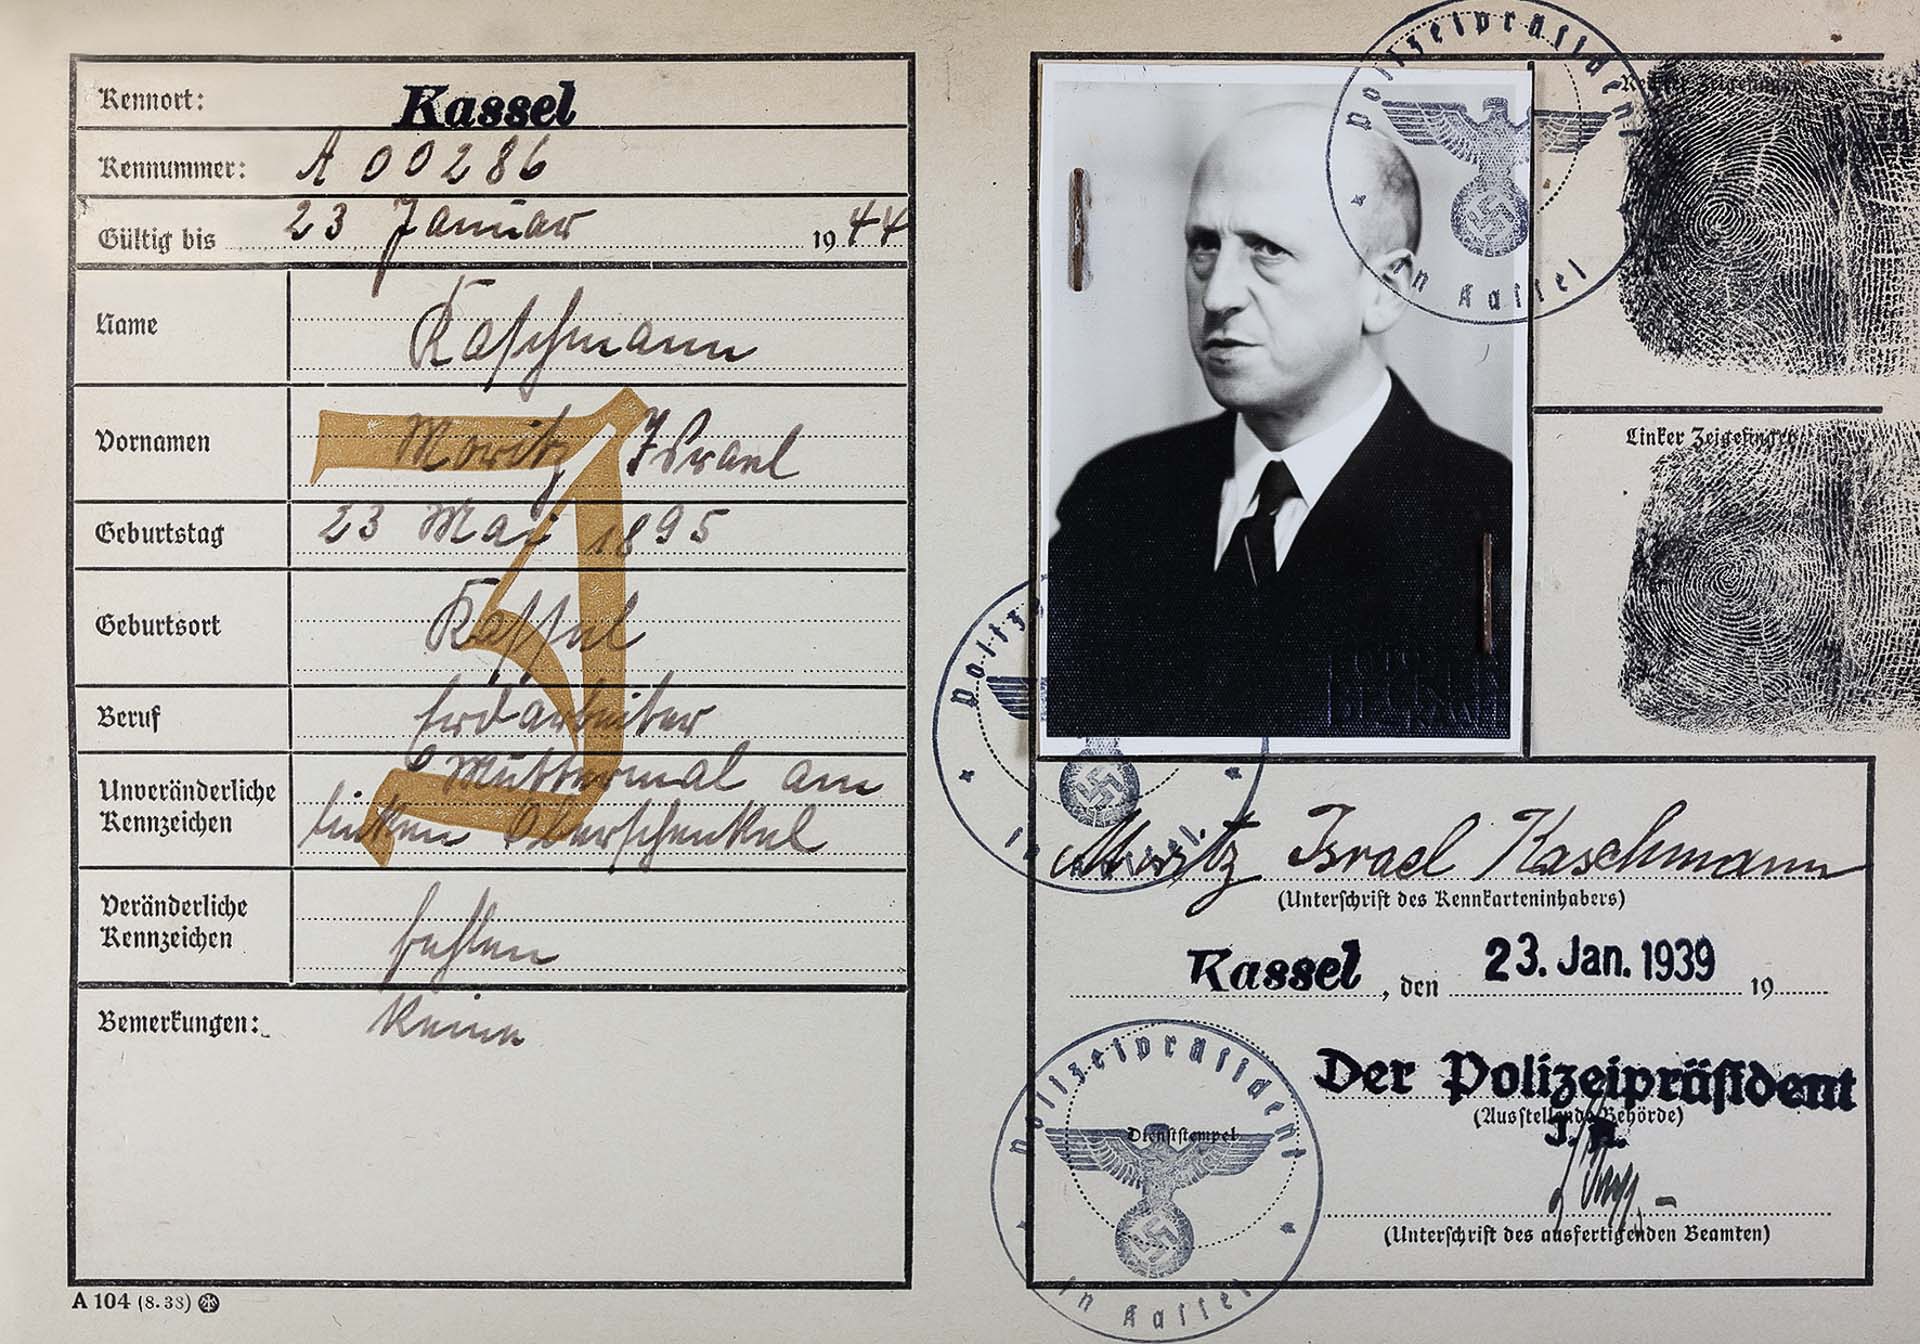 Kennort: Kassel
Kennummer: A 00286
Gültig bis 23 Januar 1944
Name Kaschmann
Vornamen Moritz Israel
J
Geburtstag 23 Mai 1895
Geburtsort Kassel
Beruf Erdarbeiter
Unveränderliche Kennzeichen Muttermal am
linken Oberschenkel
Veränderliche Kennzeichen fehlen
Bemerkungen: Keine
A 104 (8. 38)
Polizeipräsident
in Kassel
Zeigefinger
Linker Zeigefinger
Moritz Israel Kaschmann
(Unterschrift des Kennkarteninhabers)
Kassel, den 23. Jan. 1939 19
Der Polizeipräsident
(Ausstellende Behörde)
Polizeipräsident
Dienststempel
in Kassel
(Unterschrift des ausfertigenden Beamten)